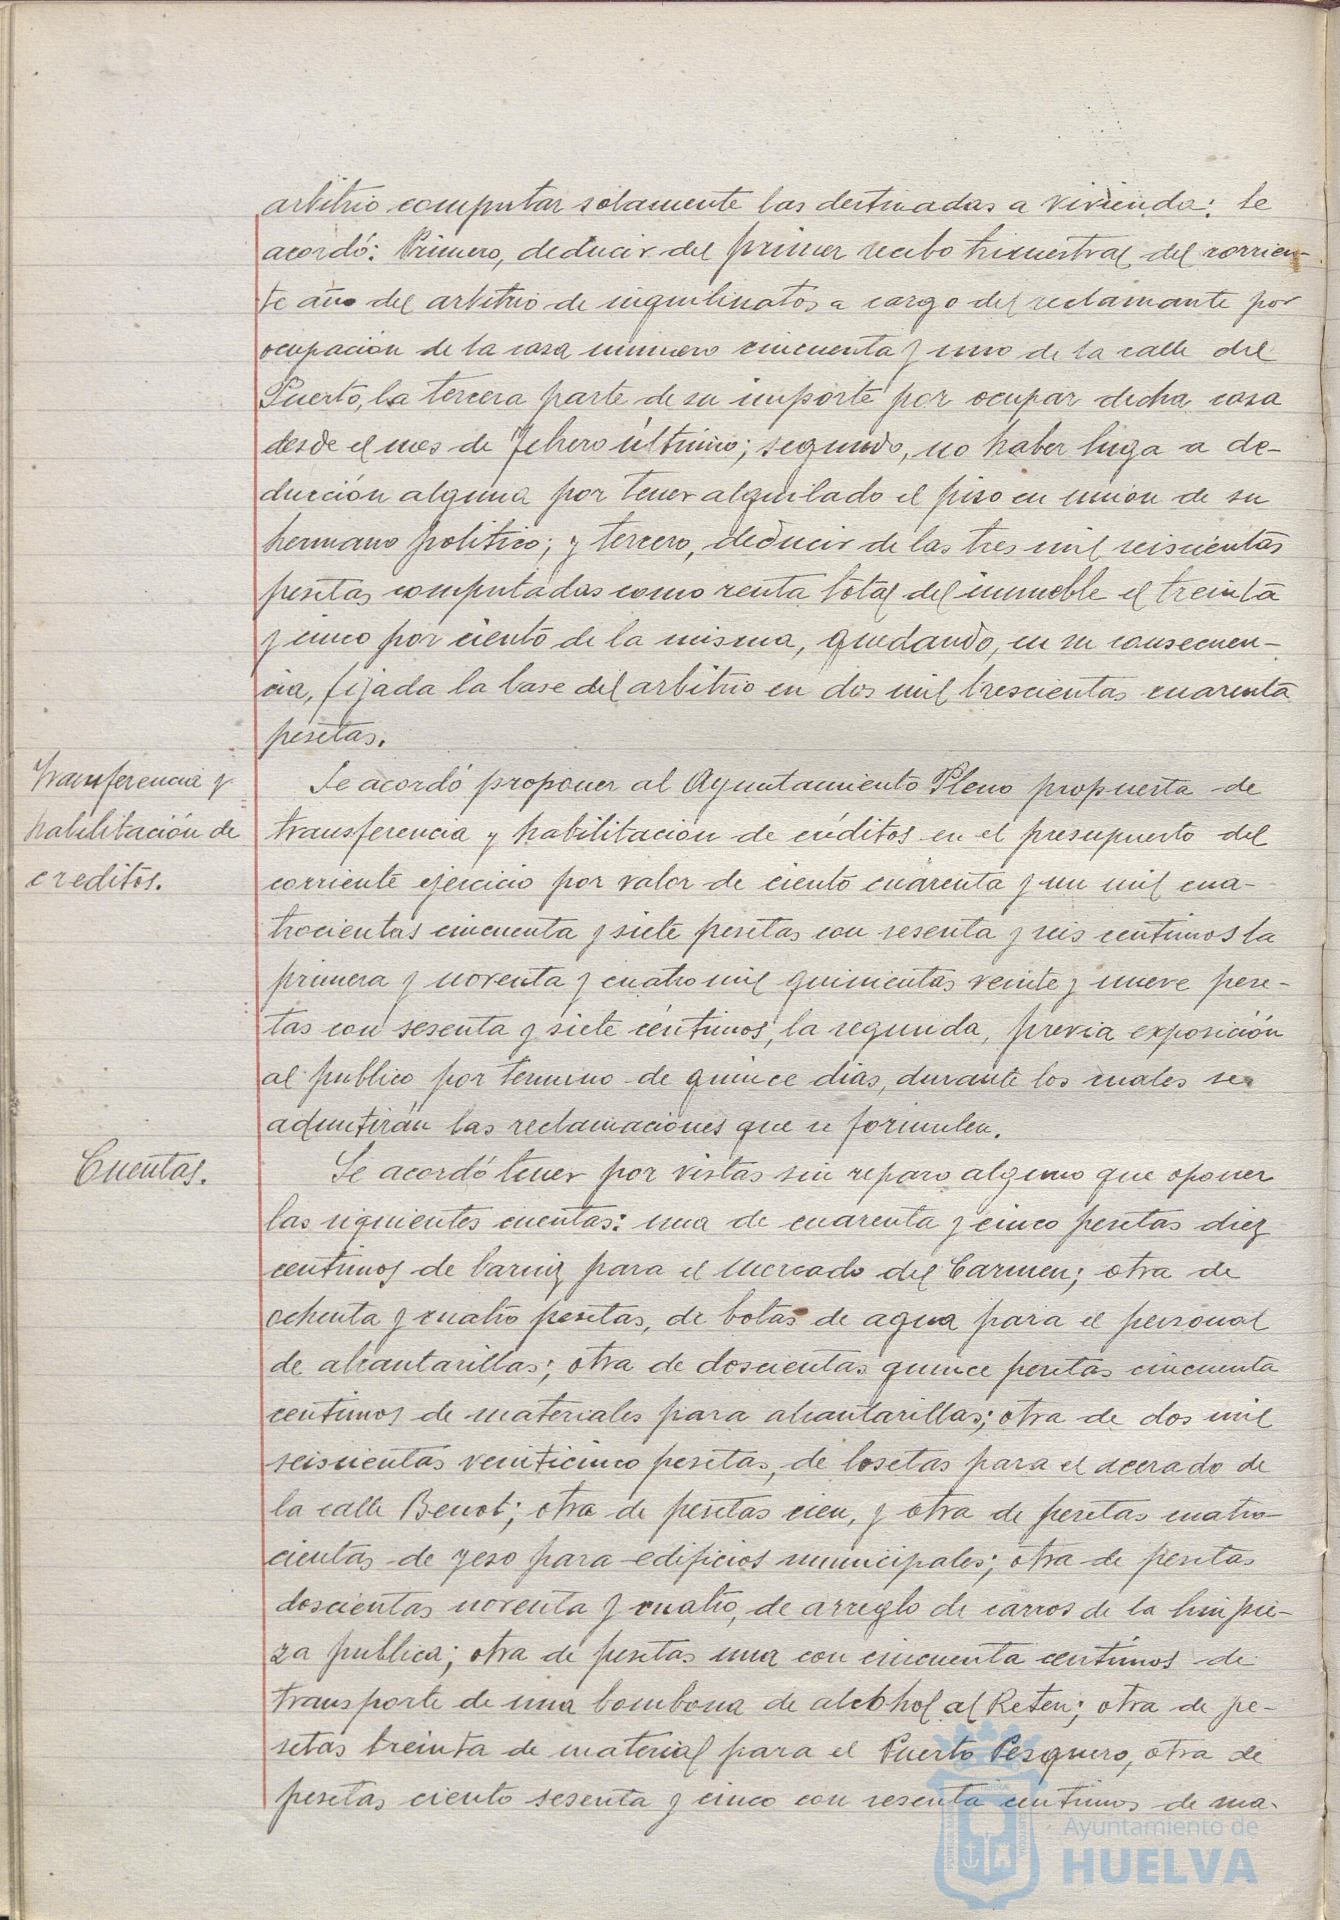 arbitrio computar solamente las destinadas a vivienda: Se
acordó: Primero, deducir del primer recibo trimestral del corrien-
te año del arbitrio de inquilinatos a cargo del reclamante por
ocupación de la casa número cincuenta y uno de la calle del
Puerto, la tercera parte de su importe por ocupar dicha casa
desde el mes de Febrero último; segundo, no haber lugar a de-
ducción alguna por tener alquilado el piso en union de su
hermano politico; y tercero, deducir de las tres mil seiscientas
pesetas computadas como renta total del inmueble el treinta
y cinco por ciento de la misma, quedando, en su consecuen-
cia, fijada la base del arbitrio en dos mil trescientas cuarenta
pesetas.
Transferencia y
habilitación de
creditos.
Se acordó proponer al Ayuntamiento Pleno propuesta de
transferencia y habilitación de créditos en el presupuesto del
corriente ejercicio por valor de ciento cuarenta y un mil cua-
trocientas cincuenta y siete pesetas con sesenta y seis centimos la
primera y noventa y cuatro mil quinientas veinte y nueve pese-
tas con sesenta y siete céntimos, la segunda, previa exposición
al publico por termino de quince dias, durante los cuales se
admitirán las reclamaciones que se formulen.
Cuentas.
Se acordó tener por vistas sin reparo alguno que oponer
las siguientes cuentas: una de cuarenta y cinco pesetas diez
centimos de barniz para el Mercado del Carmen; otra de
ochenta y cuatro pesetas, de botas de agua para el personal
de alcantarillas; otra de doscientas quince pesetas cincuenta
centimos de materiales para alcantarillas; otra de dos mil
seiscientas veinticinco pesetas, de losetas para el acerado de
la calle Benot; otra de pesetas cien, y otra de pesetas cuatro-
cientas de yeso para edificios municipales; otra de pesetas
doscientas noventa y cuatro, de arreglo de carros de la limpie-
za publica; otra de pesetas una con cincuenta centimos de
transporte de una bombona de alcohol al Reten; otra de pe-
setas treinta de material para el Puerto Pesquero, otra de
pesetas ciento sesenta y cinco con sesenta centimos de ma-
Ayuntamiento de
HUELVA